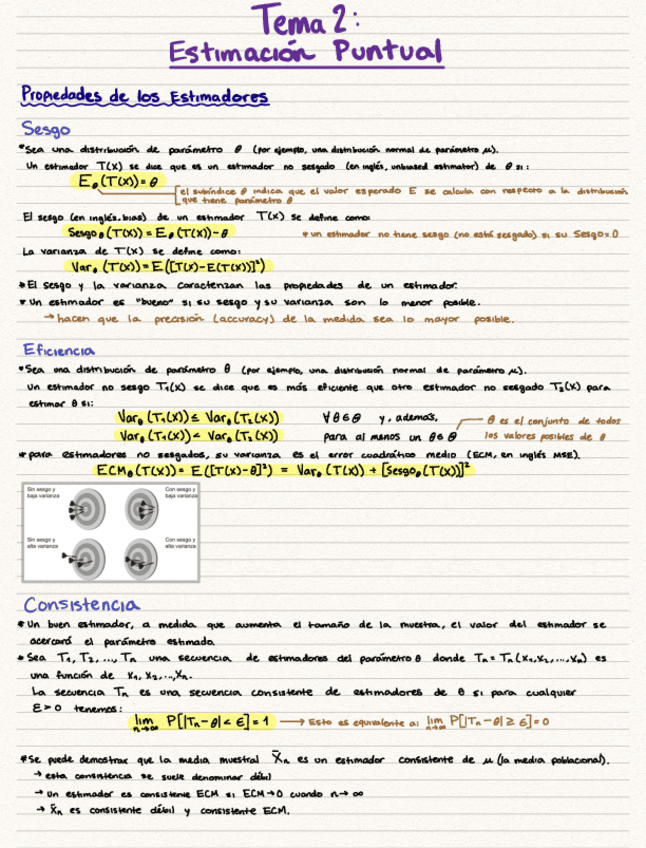 Tema 2:
Estimación Puntual
Propiedades de los Estimadores
Sesgo
*Sea una distribución de parámetro θ (por ejemplo, una distribución normal de parámetro μ).
Un estimador T(X) se dice que es un estimador no sesgado (en inglés, unbiased estimator) de θ si:
E_θ(T(X)) = θ
el subíndice θ indica que el valor esperado E se calcula con respecto a la distribución
que tiene parámetro θ
El sesgo (en inglés, bias) de un estimador T(X) se define como:
Sesgo_θ(T(X)) = E_θ(T(X)) - θ
*un estimador no tiene sesgo (no está sesgado) si su Sesgo = 0
La varianza de T(X) se define como:
Var_θ(T(X)) = E([T(X) - E(T(X))]²)
*El sesgo y la varianza caracterizan las propiedades de un estimador.
*Un estimador es "bueno" si su sesgo y su varianza son lo menor posible.
→ hacen que la precisión (accuracy) de la medida sea lo mayor posible.
Eficiencia
*Sea una distribución de parámetro θ (por ejemplo, una distribución normal de parámetro μ).
Un estimador no sesgo T₁(X) se dice que es más eficiente que otro estimador no sesgado T₂(X) para
estimar θ si:
Var_θ(T₁(X)) ≤ Var_θ(T₂(X)) ∀θ∈Θ y, además,
Var_θ(T₁(X)) < Var_θ(T₂(X)) para al menos un θ∈Θ
Θ es el conjunto de todos
los valores posibles de θ
*para estimadores no sesgados, su varianza es el error cuadrático medio (ECM, en inglés MSE).
ECM_θ(T(X)) = E([T(X) - θ]²) = Var_θ(T(X)) + [Sesgo_θ(T(X))]²
Sin sesgo y
baja varianza
Con sesgo y
baja varianza
Sin sesgo y
alta varianza
Con sesgo y
alta varianza
Consistencia
*Un buen estimador, a medida que aumenta el tamaño de la muestra, el valor del estimador se
acercará el parámetro estimado.
*Sea T₁, T₂, ..., Tₙ una secuencia de estimadores del parámetro θ donde Tₙ = Tₙ(X₁, X₂, ..., Xₙ) es
una función de X₁, X₂, ..., Xₙ.
La secuencia Tₙ es una secuencia consistente de estimadores de θ si para cualquier
ε > 0 tenemos:
lim n→∞ P[|Tₙ - θ| < ε] = 1 → Esto es equivalente a: lim n→∞ P[|Tₙ - θ| ≥ ε] = 0
*Se puede demostrar que la media muestral X̄ₙ es un estimador consistente de μ (la media poblacional).
→ esta consistencia se suele denominar débil
→ un estimador es consistente ECM si ECM → 0 cuando n → ∞
→ X̄ₙ es consistente débil y consistente ECM.